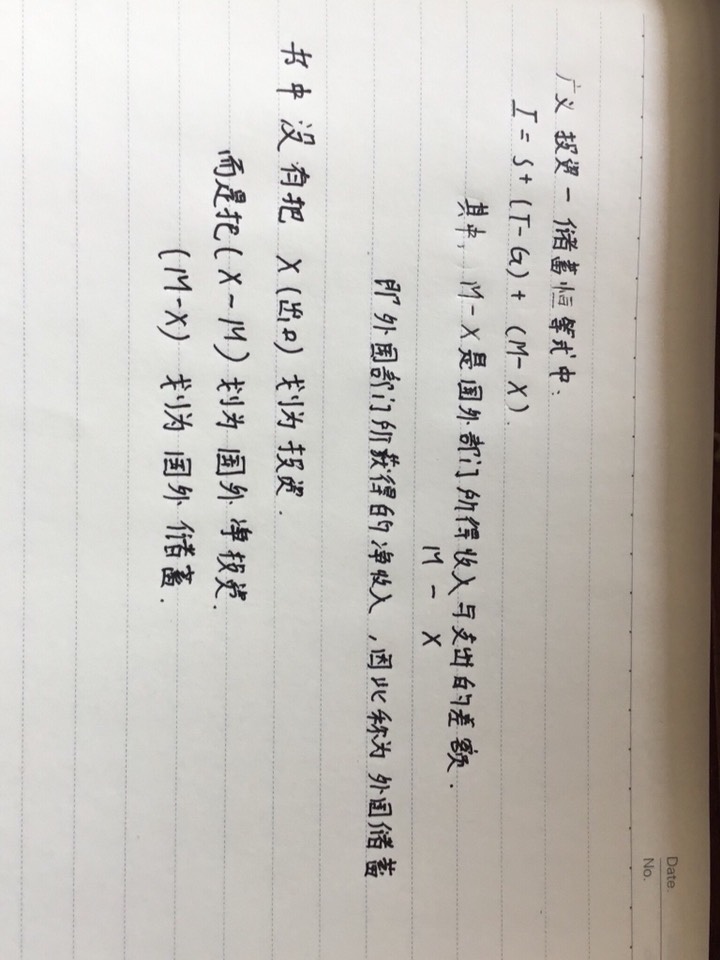 Date.
No.
广义投资-储蓄恒等式中、
I = S + (T-G) + (M-X).
其中, M-X是国外部门所得收入与支出的差额.
M - X
即外国部门所获得的净收入,因此称为外国储蓄
书中没有把 X(出口) 划为投资.
而是把(X-M)划为国外净投资.
(M-X) 划为国外储蓄.